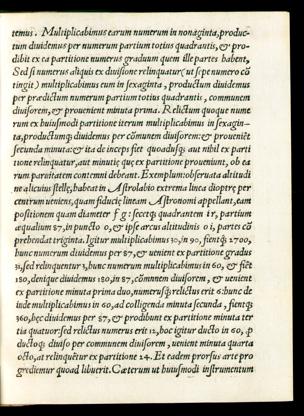 temus. Multiplicabimus earum numerum in nonaginta, produc-
tum diuidemus per numerum partium totius quadrantis, & pro-
dibit ex ea partitione numerus graduum quem illæ partes habent,
Sed si numerus aliquis ex diuisione relinquatur (ut sępe numero cō
tingit) multiplicabimus eum in sexaginta, productum diuidemus
per prædictum numerum partium totius quadrantis, communem
diuisorem, & prouenient minuta prima. Relictum quoque nume
rum ex huiusmodi partitione iterum multiplicabimus in sexagin-
ta, productumq́; diuidemus per cōmunem diuisorem: & prouenięt
secunda minuta: & ita deinceps fiet quoadusq́; aut nihil ex parti
tione relinquatur, aut minutię quę ex partitione proueniunt, ob ea
rum paruitatem contemni debeant. Exemplum: obseruata altitudi
ne alicuius stellę, habeat in Astrolabio extrema linea dioptrę per
centrum ueniens, quam fiducię lineam Astronomi appellant, eam
positionem quam diameter f g: secetq́; quadrantem i r, partium
æqualium 87, in puncto o, & ipse arcus altitudinis o i, partes cō
prehendat triginta. Igitur multiplicabimus 30, in 90, fientq́; 2700,
hunc numerum diuidemus per 87, & uenient ex partitione gradus
31, sed relinquentur 3, hunc numerum multiplicabimus in 60, & fiēt
180, denique diuidemus 180, in 87, cōmunem diuisorem, & uenient
ex partitione minuta prima duo, numerusq́; relictus erit 6: hunc de
inde multiplicabimus in 60, ad colligenda minuta secunda, fientq́;
360, hęc diuidemus per 87, & prodibunt ex partitione minuta ter
tia quatuor: sed relictus numerus erit 12, hoc igitur ducto in 60, ꝓ
ductoq́; diuiso per communem diuisorem, uenient minuta quarta
octo, at relinquētur ex partitione 24. Et eadem prorsus arte pro
grediemur quoad libuerit. Cæterum ut huiusmodi instrumentum